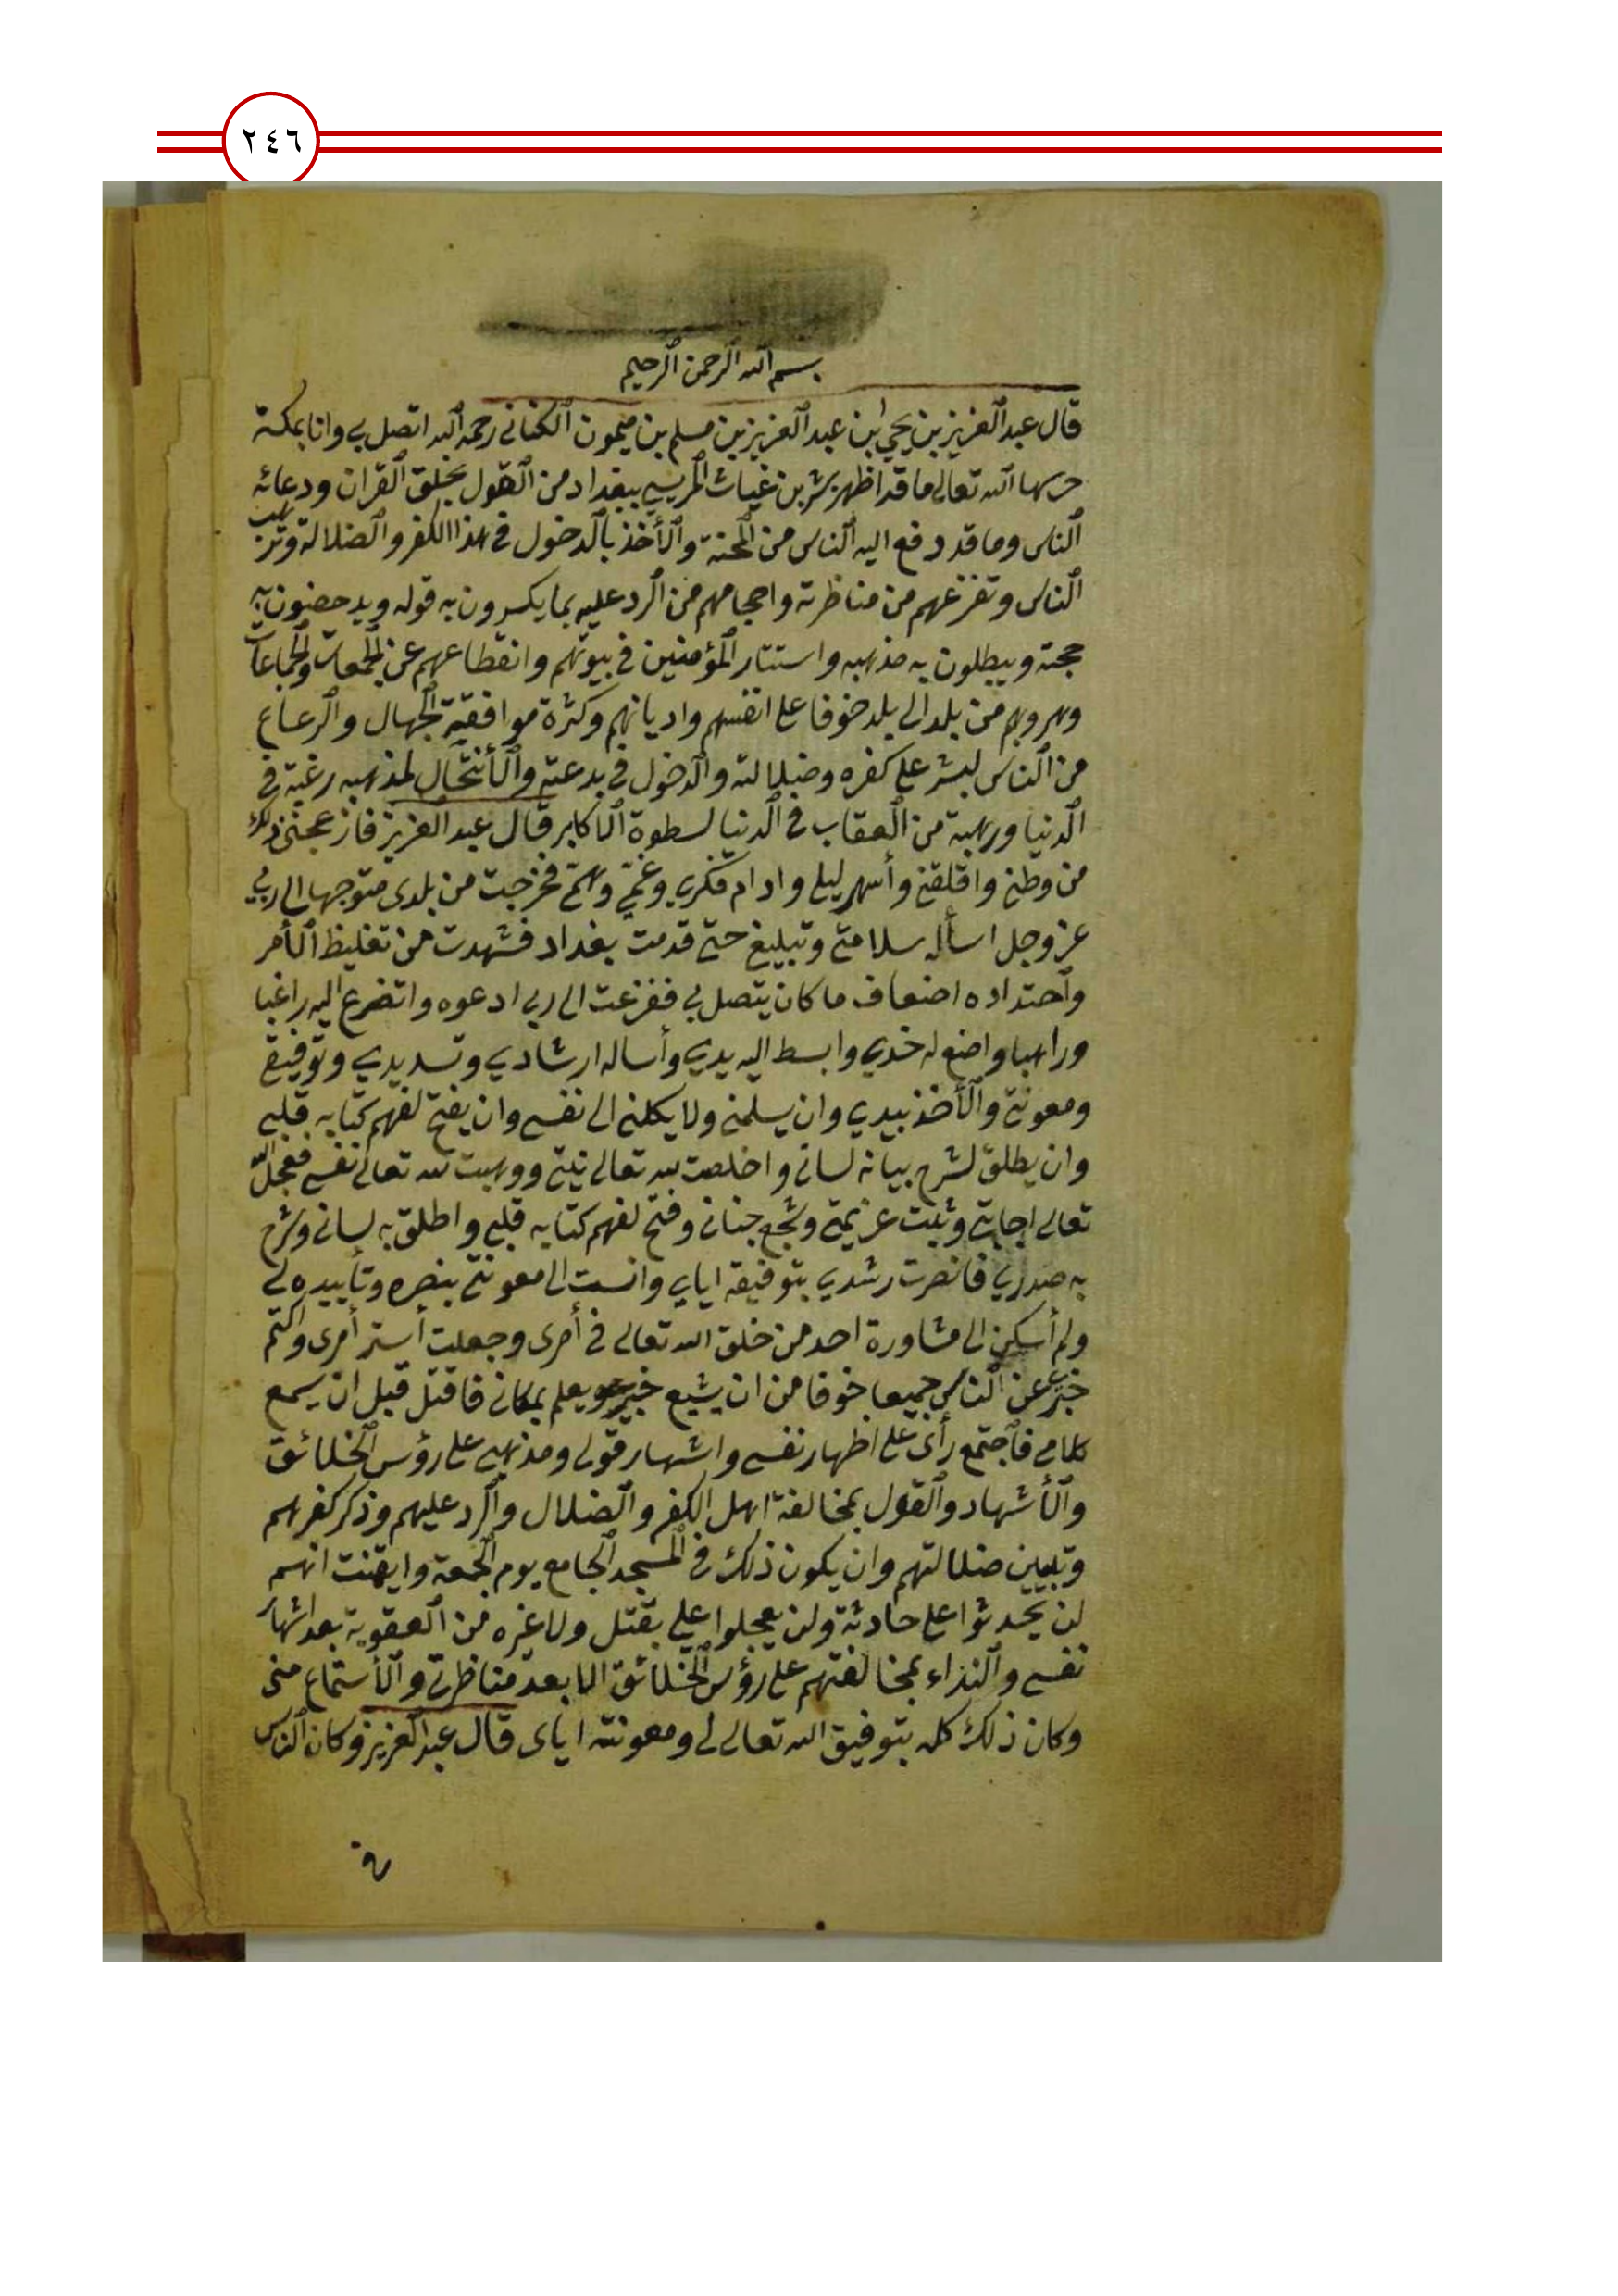 ٢٤٦
بسم الله الرحمن الرحيم
قال عبد العزيز بن يحيى ابن عبد العزيز بن مسلم بن ميمون الكناني رحمه الله اتصل بي وانا بمكة
حرسها الله تعالى ما قد اظهر بشر بن غياث المريسي ببغداد من القول بخلق القران ودعائه
الناس وما قد دفع اليه الناس من المحنة والأخذ بالدخول في هذا الكفر والضلالة وترهيب
الناس وتفزعهم من مناظرته واحجامهم من الرد عليه بما يكسرون به قوله ويدحضون به
حجته ويبطلون به مذهبه واستتار المؤمنين في بيوتهم وانقطاعهم عن الجمعات والجماعات
وهروبهم من بلد الى بلد خوفا على انفسهم واديانهم وكثرة موافقة الجهال والرعاع
من الناس لبشر على كفره وضلالته والدخول في بدعته والأنتحال لمذهبه رغبة في
الدنيا ورهبة من العقاب في الدنيا لسطوة الاكابر قال عبد العزيز فازعجني ذلك
من وطني واقلقني وأسهر ليلي وادام فكري وغمي وهمي فخرجت من بلدى متوجها الى ربي
عز وجل اسأله سلامتي وتبليغي حتى قدمت بغداد فشهدت من تغليظ الأمر
واحتداده اضعاف ما كان يتصل بي ففزعت الى ربي ادعوه واتضرع اليه راغبا
وراهبا واضع له خدي وابسط اليه يدي وأساله ارشادي وتسديدي وتوفيقي
ومعونتي والأخذ بيدي وان يسلمني ولا يكلني الى نفسي وان يفتح لفهم كتابه قلبي
وان يطلق لشرح بيانه لساني واخلصت لله تعالى نيتي ووهبت لله تعالى نفسي فعجل الله
تعالى اجابتي وثبت عزيمتي وشجع جناني وفتح لفهم كتابه قلبي واطلق به لساني وشرح
به صدري فانصرت رشدي بتوفيقه اياي وانست الى معونتي بنصره وتأييده لي
ولم أسكن الى مشاورة احد من خلق الله تعالى في أمرى وجعلت أستر أمرى واكتم
خبري عن الناس جميعا خوفا من ان يشيع خبري ويعلم بمكاني فاقتل قبل ان يسمع
كلامي فاجتمع رأى على اظهار نفسي واشهار قولي ومذهبي على رؤس الخلائق
والأشهاد والقول بمخالفة اهل الكفر والضلال والرد عليهم وذكر كفرهم
وتبيين ضلالتهم وان يكون ذلك في المسجد الجامع يوم الجمعة وايقنت انهم
لن يحدثوا علي حادثة ولن يعجلوا علي بقتل ولا غيره من العقوبة بعد اشهار
نفسي والنداء بمخالفتهم على رؤس الخلائق الا بعد مناظرتي والأستماع منى
وكان ذلك كله بتوفيق الله تعالى لي ومعونته اياى قال عبد العزيز وكان الناس